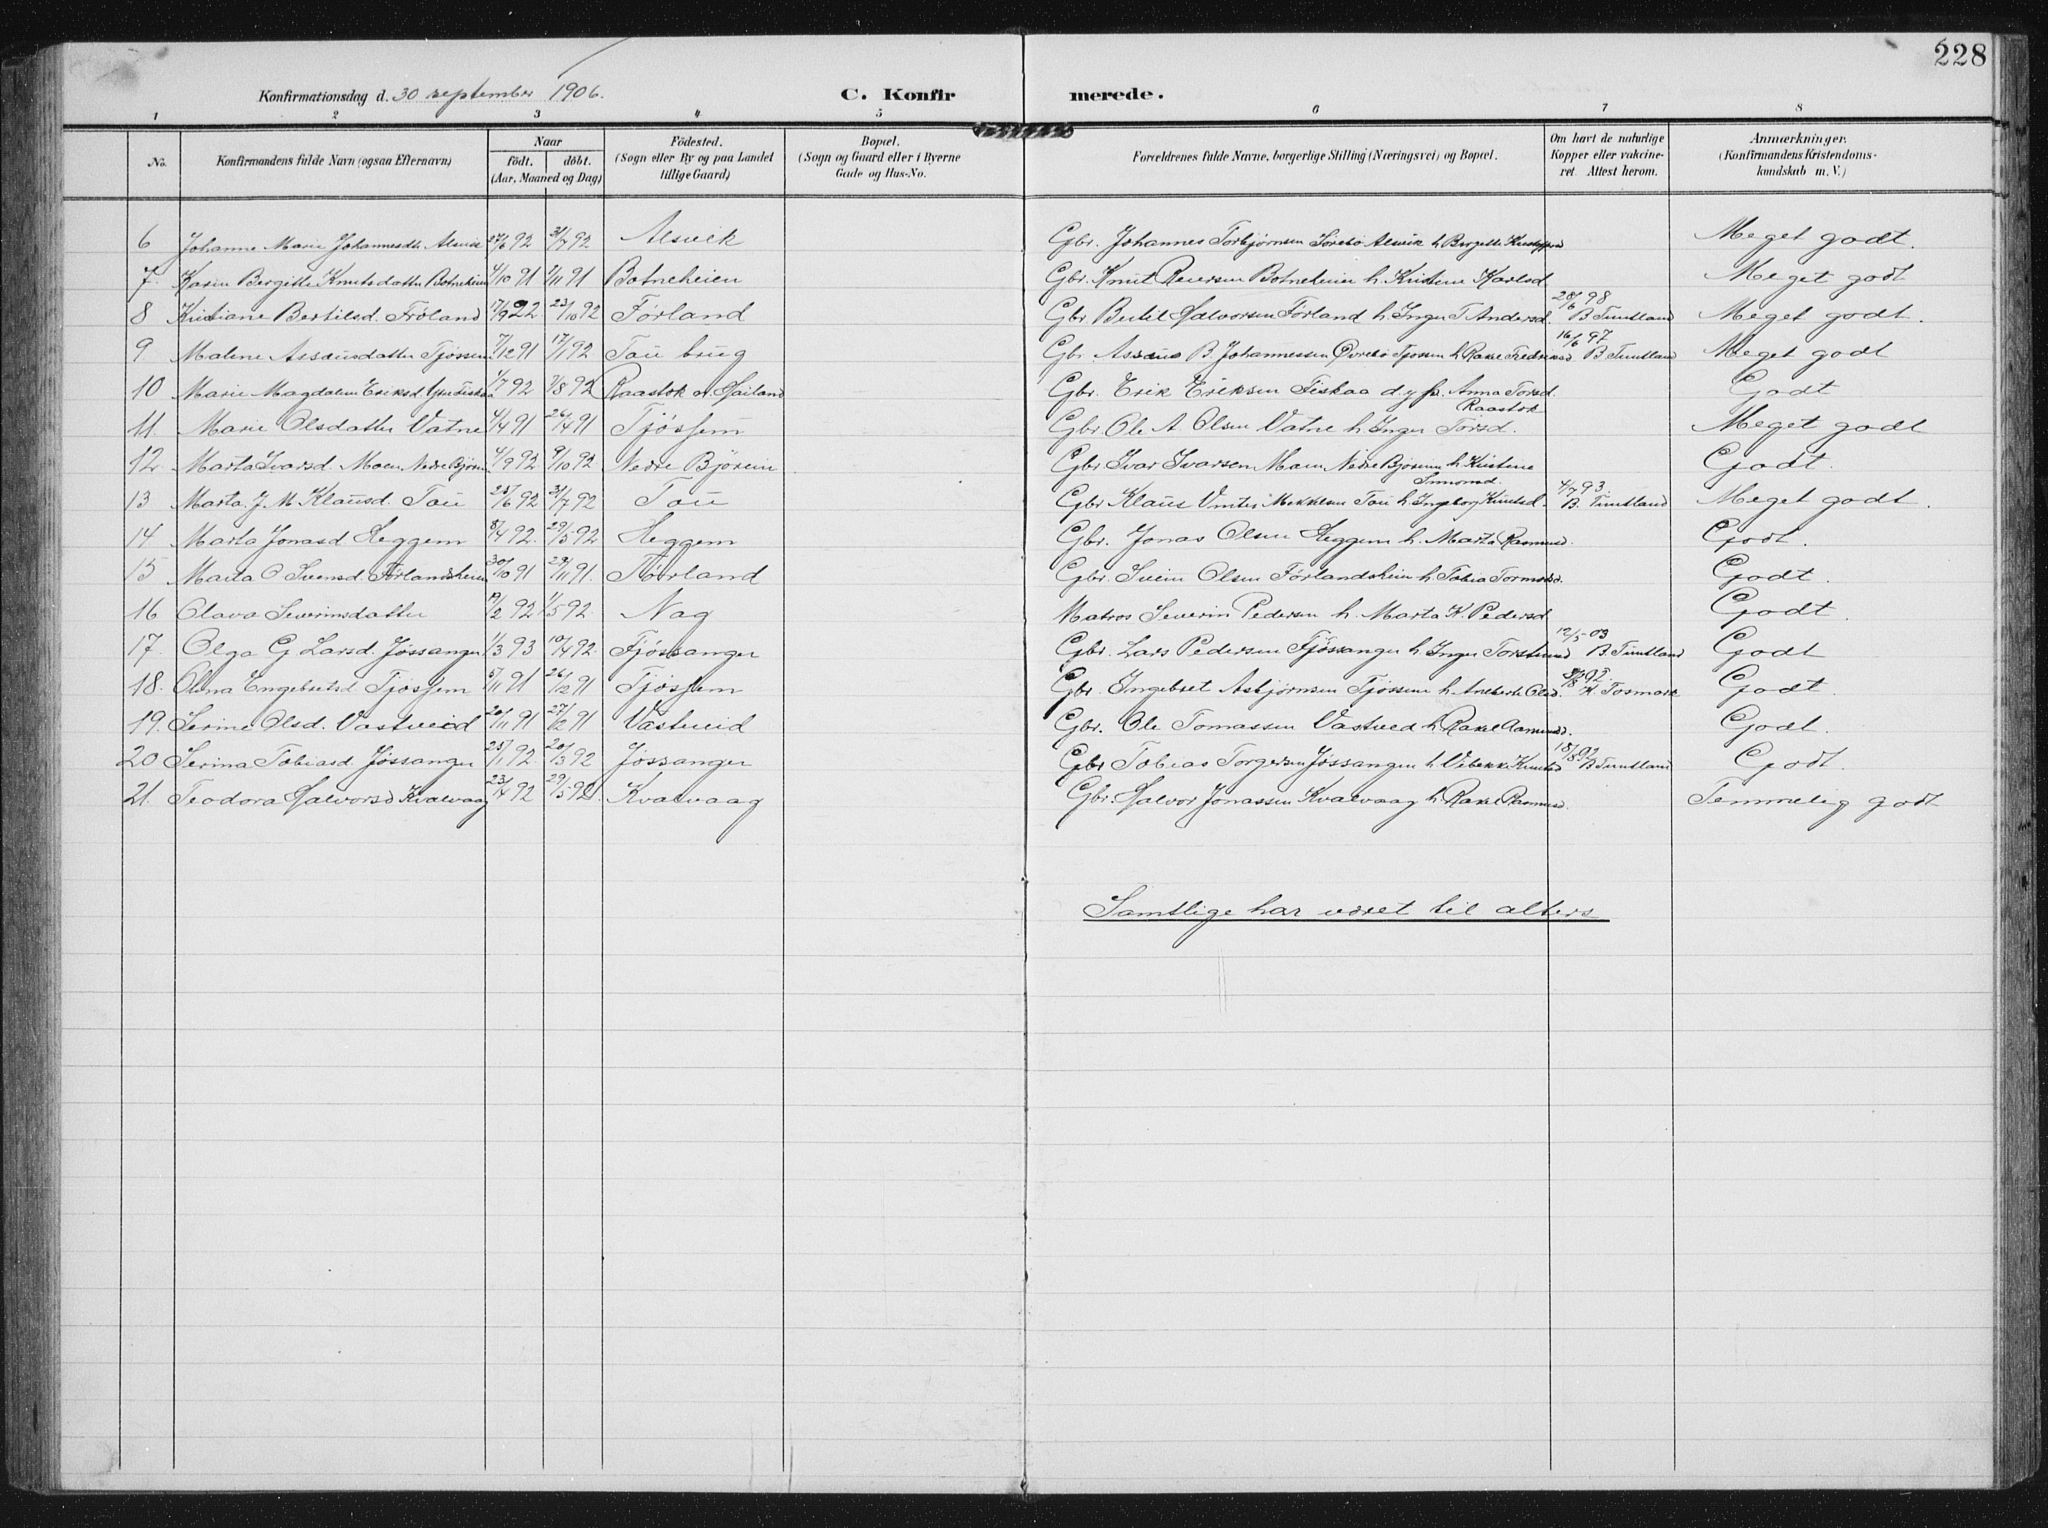 228
Konfirmationsdag d. 30 september 1906.
C. Konfir merede.
1 2 3 4 5 6 7 8
No. Konfirmandens fulde Navn (ogsaa Efternavn) Naar født. døbt. (Aar, Maaned og Dag) Födested. (Sogn eller By og paa Landet tillige Gaard) Bopæl. (Sogn og Gaard eller i Byerne Gade og Hus-No. Forældrenes fulde Navne, borgerlige Stilling (Næringsvei) og Bopæl. Om havt de naturlige Kopper eller vakcineret. Attest herom. Anmærkninger. (Konfirmandens Kristendomskundskab m. V.)
6 Johanne Marie Johannesdtr. Alsvik 27/6 92 31/7 92 Alsvik Gbr. Johannes Torbjørnsen Alsvik h. Meget godt.
7. Karin Bergitte Knutsdatter Botneheien 4/10 91 1/11 91 Botneheien Gbr. Knut Reiersen Botneheien h. Kristine Karlsd Meget godt
8 Kristiane Bertilsd. Fröland 17/9 92 23/10 92 Förland Gbr. Bertil Halvorsen Förland h. Inger T Andersd. 28/6 98 B Tuntland Meget godt.
9 Malene Assausdatter Tjössem 7/12 91 17/1 92 Tau brug Gbr. Assaus B. Johannessen Øvrebö Tjossem h Rakel 16/6 97 B Tuntland Meget godt
10 Marie Magdalena Eriksd. 1/7 92 7/8 92 Raastok Gbr. Erik Eriksen Fiskaa Anna Torsd. Raastok Godt
11. Marie Olsdatter Vatne 4/4 91 26/4 91 Tjössem Gbr. Ole A. Olsen Vatne h Inger Torsd. Meget godt
12. Marta Ivarsd. Moen Nedre 4/9 92 9/10 92 Nedre Bjørein Gbr. Ivar Ivarsen Moen Nedre h. Kristine Godt.
13 Marta J. M. Klausd. Tau 25/6 92 31/7 92 Tau Gbr Klaus Mikkelsen Tau h. Ingeborg Knutsd. 4/7 93. B. Tuntland Meget godt.
14 Marta Jonasd Heggem 8/4 92. 29/5 92 Heggem Gbr. Jonas Olsen Heggem h. Marta Rasmusd. Godt.
15 Marta O Svensd. Förlandsheien 30/10 91 29/11 91. Förland Gbr. Svein Olsen Förlandsheien h. Tobia Godt.
16 Olava Severinsdatter 92 1/5 92 Nag Matros Severin Pedersen h. Marta K Pedersd Godt.
17. Olga G Larsd. Jössanger 1/3 93 10/4 92. Fjössanger Gbr. Lars Pedersen Fjössanger h Inger 12/5 03 B. Tuntland Godt
18. Olina Engebretsd Tjössem 5/11 91 26/12 91 Tjössem Gbr. Ingebret Asbjørnsen Tjössem h. Olsd. Godt.
19. Serine Olsd. Vastveid 20/11 91 27/12 91 Vastveid Gbr. Ole Tomassen Vastveid h. Rakel Godt.
20 Serina Tobiasd. Jössanger 25/1 92. 20/3 92 Jössanger Gbr Tobias Torgersen Jössanger h. Vebekke Knutsd 18/8 02 B Tuntland Godt.
21. Teodora Halvorsd Kvalvaag 23/4 92 29/5 92. Kvalvaag Gbr. Halvor Jonassen Kvalvaag h. Rakel Rasmusd. Temmelig godt
Samtlige har været til alters